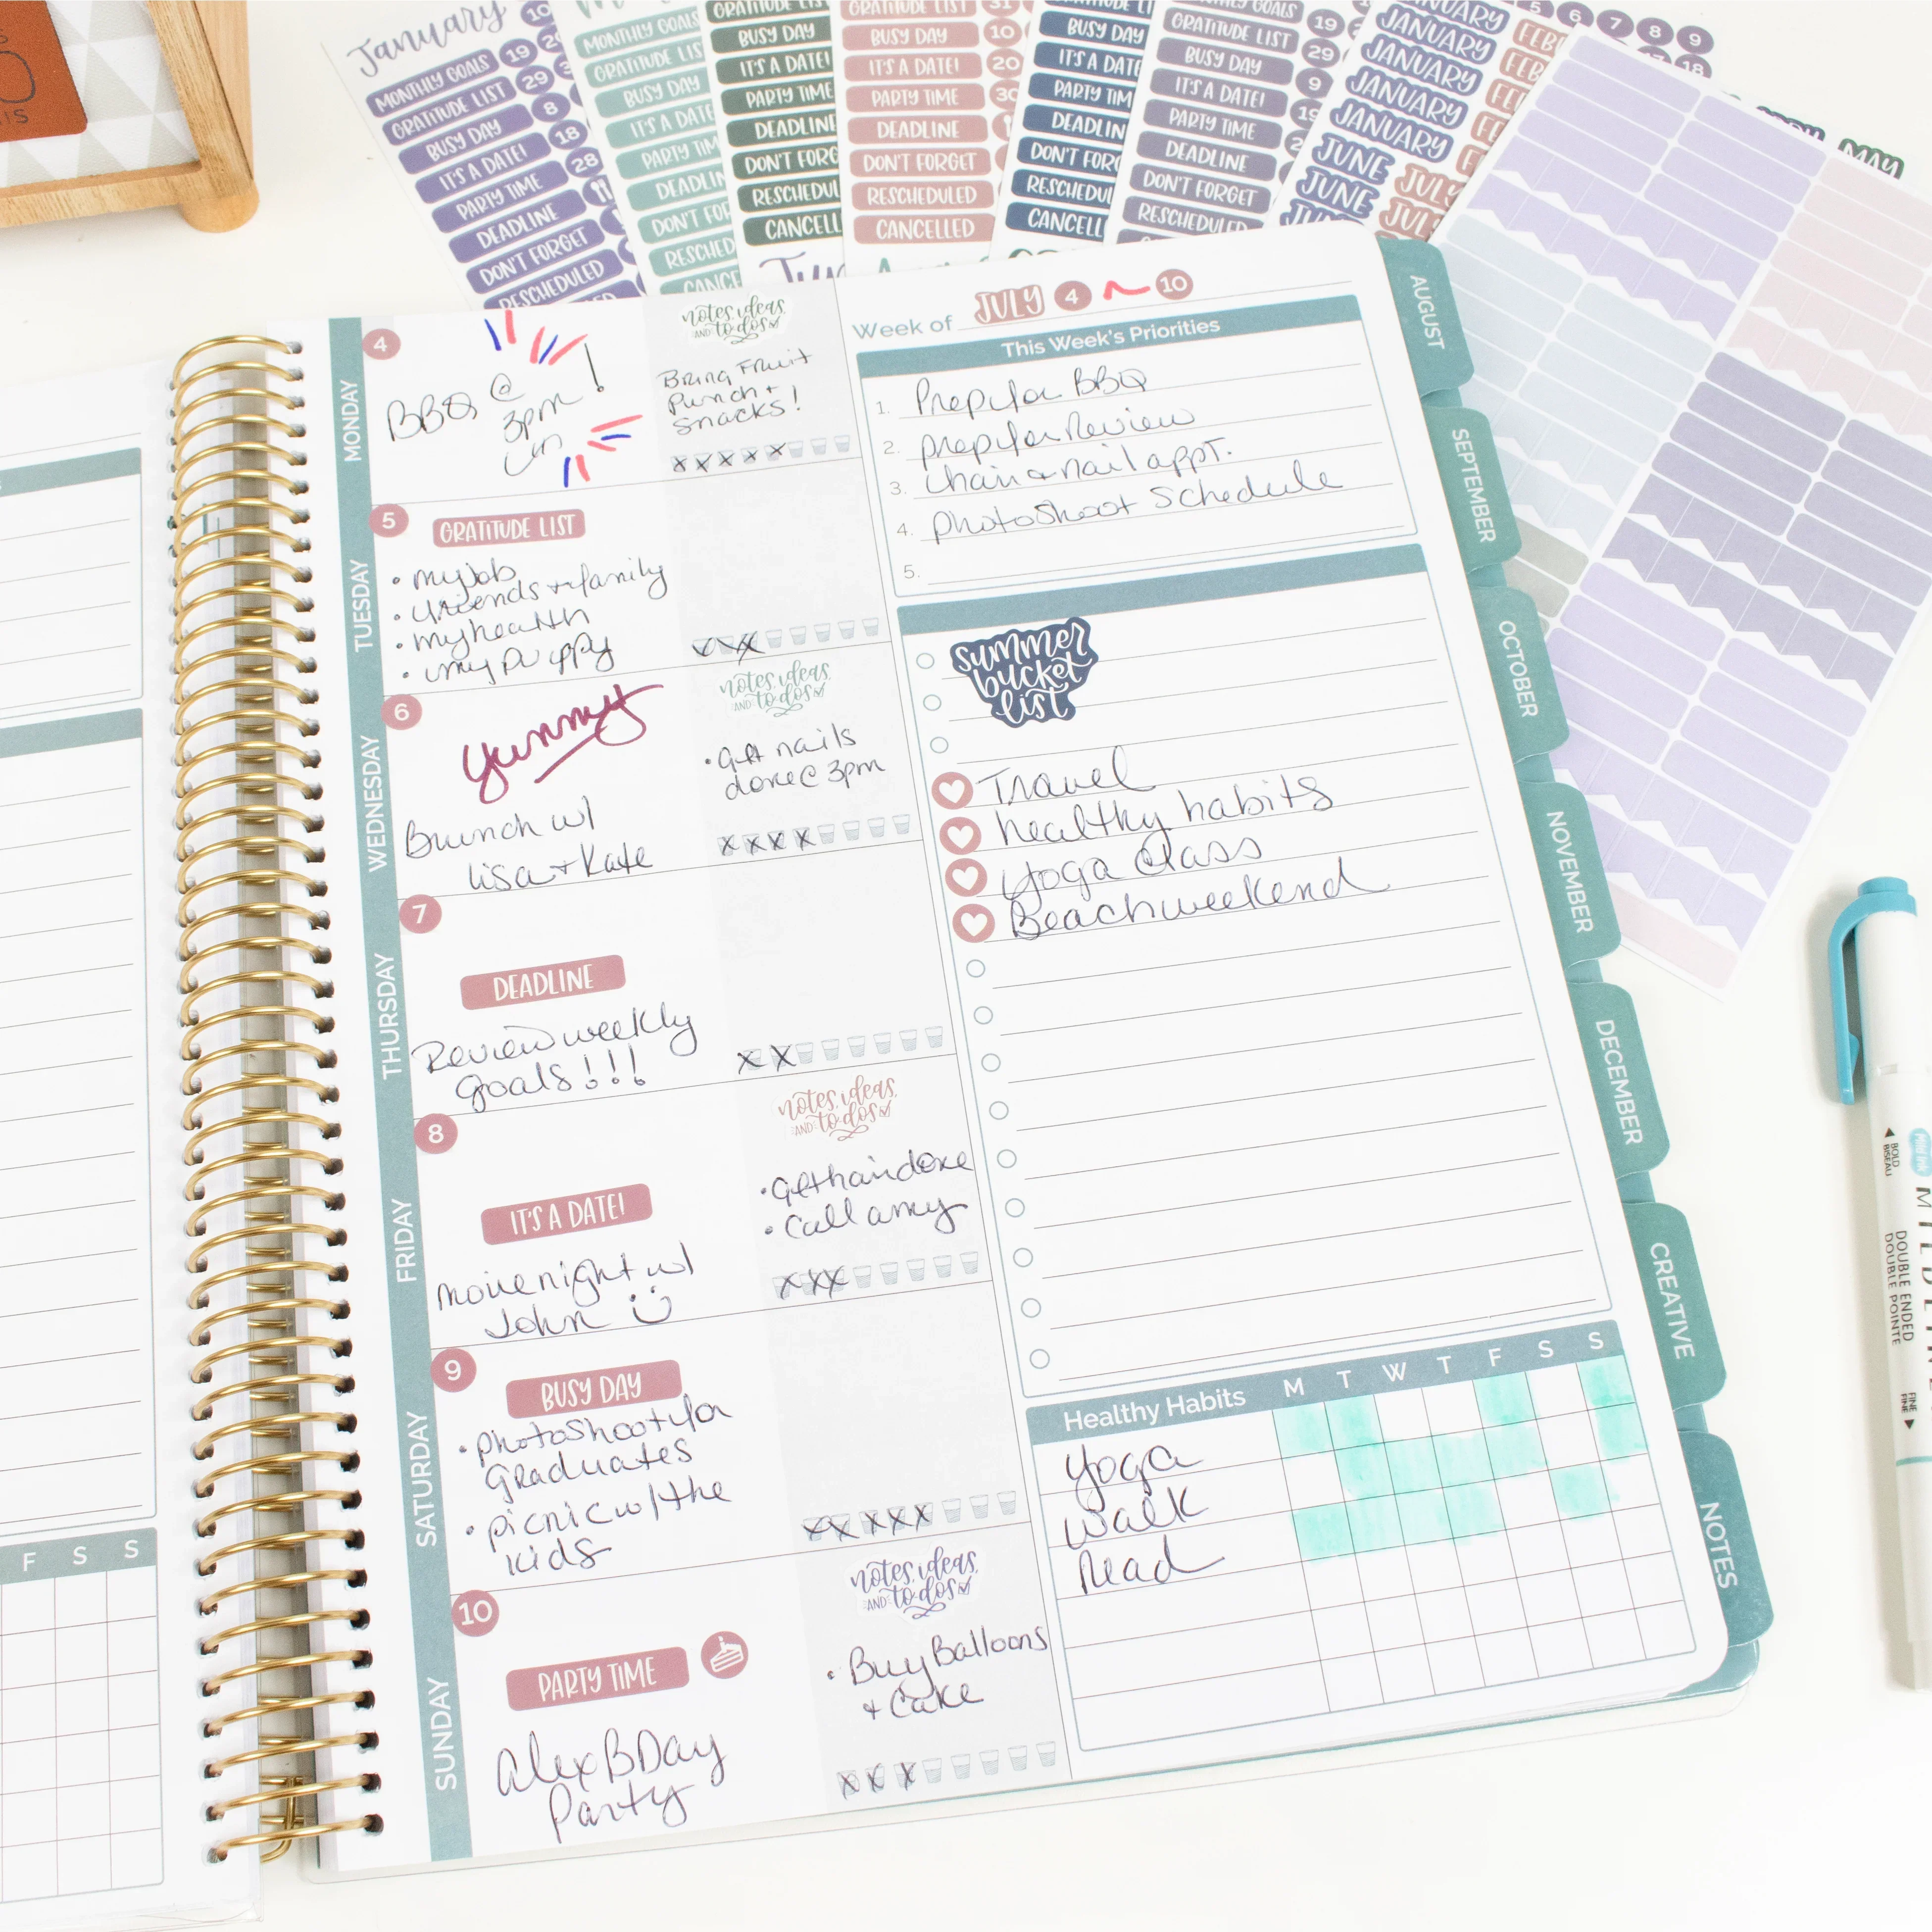 January
MONTHLY GOALS
19
GRATITUDE LIST
29
BUSY DAY
8
IT'S A DATE!
18
PARTY TIME
28
DEADLINE
DON'T FORGET
RESCHEDULED
MONTHLY GOALS
GRATITUDE LIS
BUSY DAY
IT'S A DATE
PARTY TIM
DEADLIN
DON'T FOR
RESCHED
CANCE
GRATITUDE LIS
BUSY DAY
IT'S A DATE!
PARTY TIME
DEADLINE
DON'T FORG
RESCHEDUL
CANCELL
GRATITUDE LIST
31
BUSY DAY
10
IT'S A DATE!
20
PARTY TIME
30
DEADLINE
DON'T FORGET
RESCHEDULED
CANCELLED
BUSY DAY
IT'S A DATE
PARTY TIM
DEADLIN
DON'T FORG
RESCHEDUL
CANCELL
GRATITUDE LIST
19
BUSY DAY
29
IT'S A DATE!
9
PARTY TIME
DEADLINE
DON'T FORGET
RESCHEDULED
JANUARY
JANUARY
JANUARY
JANUARY
JANUARY
JUNE
JUNE
JULY
5 6 7 8 9
18
MAY
Week of JULY 4 10
This Week's Priorities
1. Prep for BBQ
2. prep for Review
3. hair & nail appt.
4. photoshoot schedule
5.
summer
bucket
list
Travel
healthy habits
Yoga class
Beach weekend
Healthy Habits M T W T F S S
Yoga
Walk
Read
MONDAY
4
BBQ @
3pm !
notes, ideas,
AND to dos
Bring Fruit
Punch +
snacks!
TUESDAY
5
GRATITUDE LIST
• my job
• friends + family
• my health
• my puppy
WEDNESDAY
6
Yummy
Brunch w/
Lisa + Kate
notes, ideas,
AND to dos
• Get nails
done @ 3pm
THURSDAY
7
DEADLINE
Review weekly
goals!!!
FRIDAY
8
IT'S A DATE!
movie night w/
John
notes, ideas,
AND to dos
• Get hair done
• Call amy
SATURDAY
9
BUSY DAY
• photoshoot for
Graduates
• picnic w/ the
kids
SUNDAY
10
PARTY TIME
Alex BDay
Party
notes, ideas,
AND to dos
• Buy Balloons
+ Cake
F S S
AUGUST
SEPTEMBER
OCTOBER
NOVEMBER
DECEMBER
CREATIVE
NOTES
BOLD
BISEAU
DOUBLE ENDED
DOUBLE POINTE
FINE
FINE